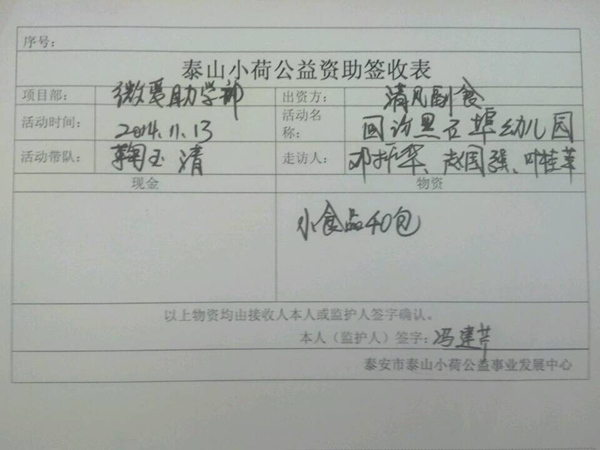 序号:
泰山小荷公益资助签收表
项目部: 微爱助学部 出资方: 清凡副食
活动时间: 2014.11.13 活动名称: 回访黑石埠幼儿园
活动带队: 鞠玉清 走访人: 邓振华、赵国强、叶桂苹
现金 物资
小食品40包
以上物资均由接收人本人或监护人签字确认。
本人（监护人）签字: 冯建芹
泰安市泰山小荷公益事业发展中心